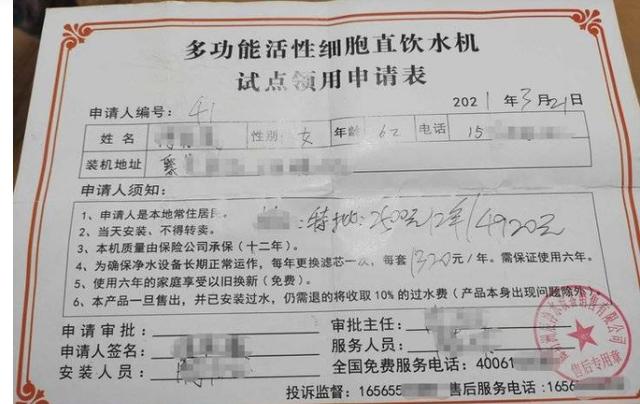 多功能活性细胞直饮水机
试点领用申请表
申请人编号： 41 2021年3月21日
姓名 性别 女 年龄 62 电话 15
装机地址
申请人须知：
1、申请人是本地常住居民。 ：特批：2500元12年14920元
2、当天安装、不得转卖。
3、本机质量由保险公司承保（十二年）。
4、为确保净水设备长期正常运作，每年更换滤芯一次，每套1320元/年。需保证使用六年。
5、使用六年的家庭享受以旧换新（免费）。
6、本产品一旦售出，并已安装过水，仍需退的将收取10%的过水费（产品本身出现问题除外）
申请审批： 审批主任：
申请人签名： 服务人员：
安装人员： 全国免费服务电话：40061
投诉监督：165655 售后服务电话：1656
销售有限公司
售后专用章